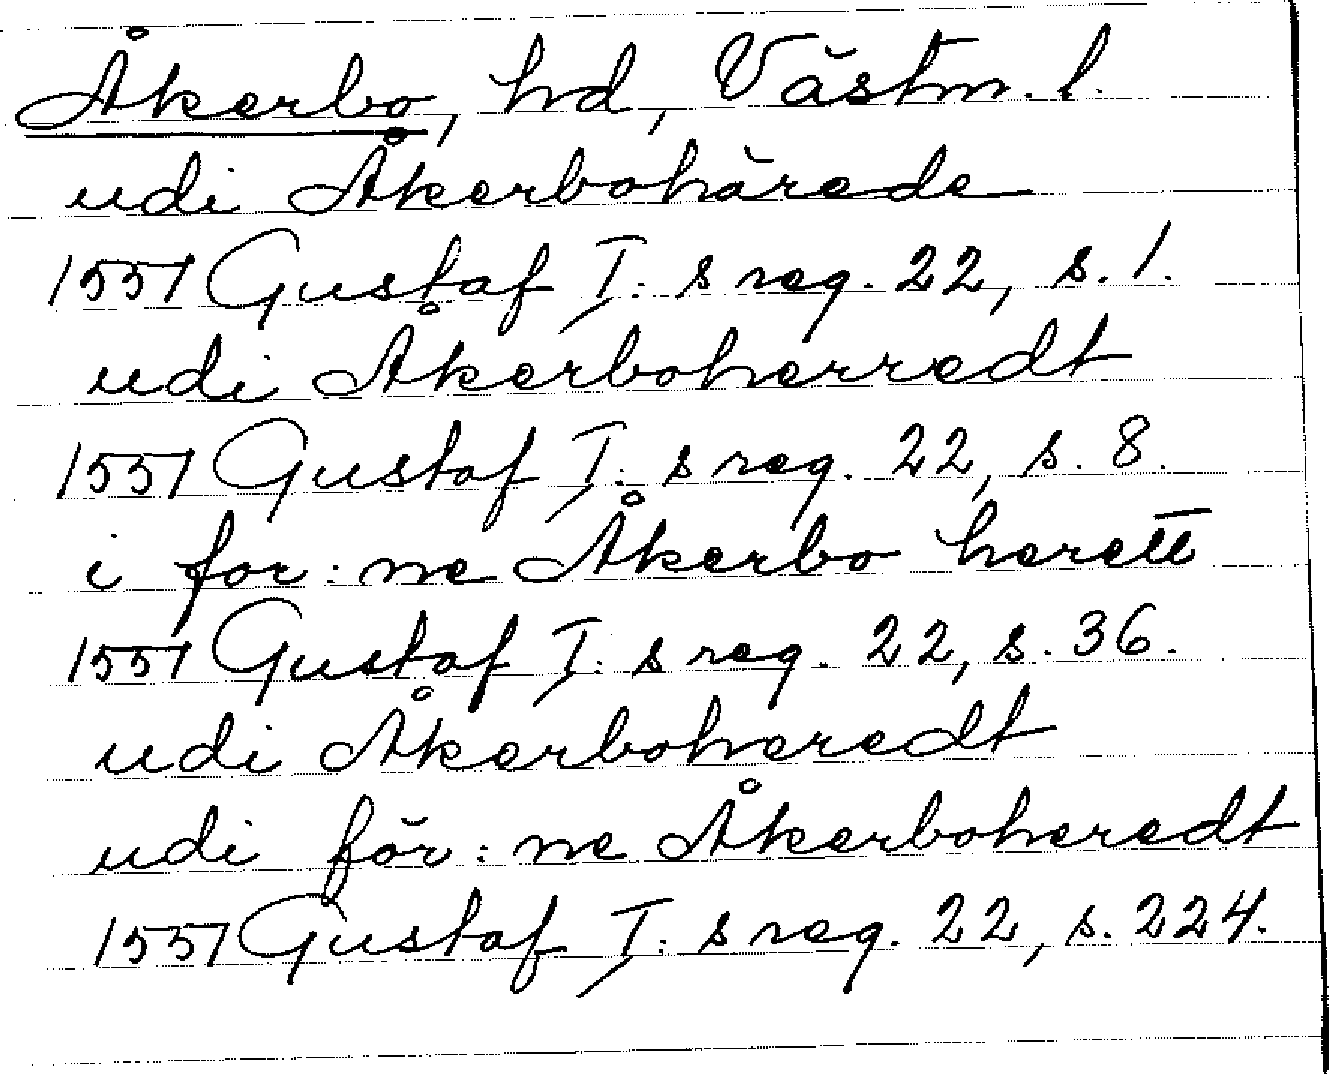 Åkerbo, hd, Västm. l.
udi Åkerbohärede
1551 Gustaf I:s reg. 22, s. 1.
udi Åkerboherredt
1551 Gustaf I:s reg. 22, s. 8.
i for:ne Åkerbo herett
1551 Gustaf I:s reg. 22, s. 36.
udi Åkerboheredt
udi för:ne Åkerboheredt
1551 Gustaf I:s reg. 22, s. 224.